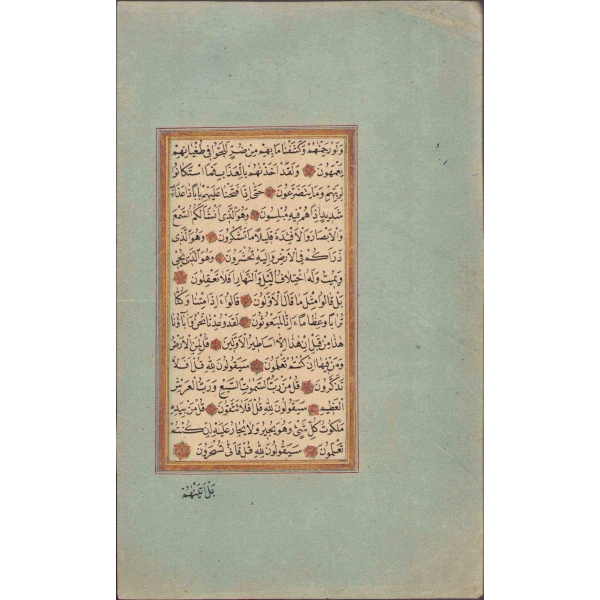 وَلَوْ رَحِمْنَاهُمْ وَكَشَفْنَا مَا بِهِمْ مِنْ ضُرٍّ لَلَجُّوا فِي طُغْيَانِهِمْ
يَعْمَهُونَ وَلَقَدْ اَخَذْنَاهُمْ بِالْعَذَابِ فَمَا اسْتَكَانُوا
لِرَبِّهِمْ وَمَا يَتَضَرَّعُونَ حَتّٰى اِذَا فَتَحْنَا عَلَيْهِمْ بَابًا ذَا عَذَابٍ
شَدِيدٍ اِذَا هُمْ فِيهِ مُبْلِسُونَ وَهُوَ الَّذِى اَنْشَاَ لَكُمُ السَّمْعَ
وَالْاَبْصَارَ وَالْاَفْئِدَةَ قَلِيلًا مَا تَشْكُرُونَ وَهُوَ الَّذِى
ذَرَاَكُمْ فِى الْاَرْضِ وَاِلَيْهِ تُحْشَرُونَ وَهُوَ الَّذِى يُحْيِى
وَيُمِيتُ وَلَهُ اخْتِلَافُ الَّيْلِ وَالنَّهَارِ اَفَلَا تَعْقِلُونَ
بَلْ قَالُوا مِثْلَ مَا قَالَ الْاَوَّلُونَ قَالُوا ءَاِذَا مِتْنَا وَكُنَّا
تُرَابًا وَعِظَامًا ءَاِنَّا لَمَبْعُوثُونَ لَقَدْ وُعِدْنَا نَحْنُ وَاٰبَاؤُنَا
هٰذَا مِنْ قَبْلُ اِنْ هٰذَا اِلَّا اَسَاطِيرُ الْاَوَّلِينَ قُلْ لِمَنِ الْاَرْضُ
وَمَنْ فِيهَا اِنْ كُنْتُمْ تَعْلَمُونَ سَيَقُولُونَ لِلّٰهِ قُلْ اَفَلَا
تَذَكَّرُونَ قُلْ مَنْ رَبُّ السَّمٰوَاتِ السَّبْعِ وَرَبُّ الْعَرْشِ
الْعَظِيمِ سَيَقُولُونَ لِلّٰهِ قُلْ اَفَلَا تَتَّقُونَ قُلْ مَنْ بِيَدِهِ
مَلَكُوتُ كُلِّ شَيْءٍ وَهُوَ يُجِيرُ وَلَا يُجَارُ عَلَيْهِ اِنْ كُنْتُمْ
تَعْلَمُونَ سَيَقُولُونَ لِلّٰهِ قُلْ فَاَنّٰى تُسْحَرُونَ
بَلْ اَتَيْنَاهُمْ